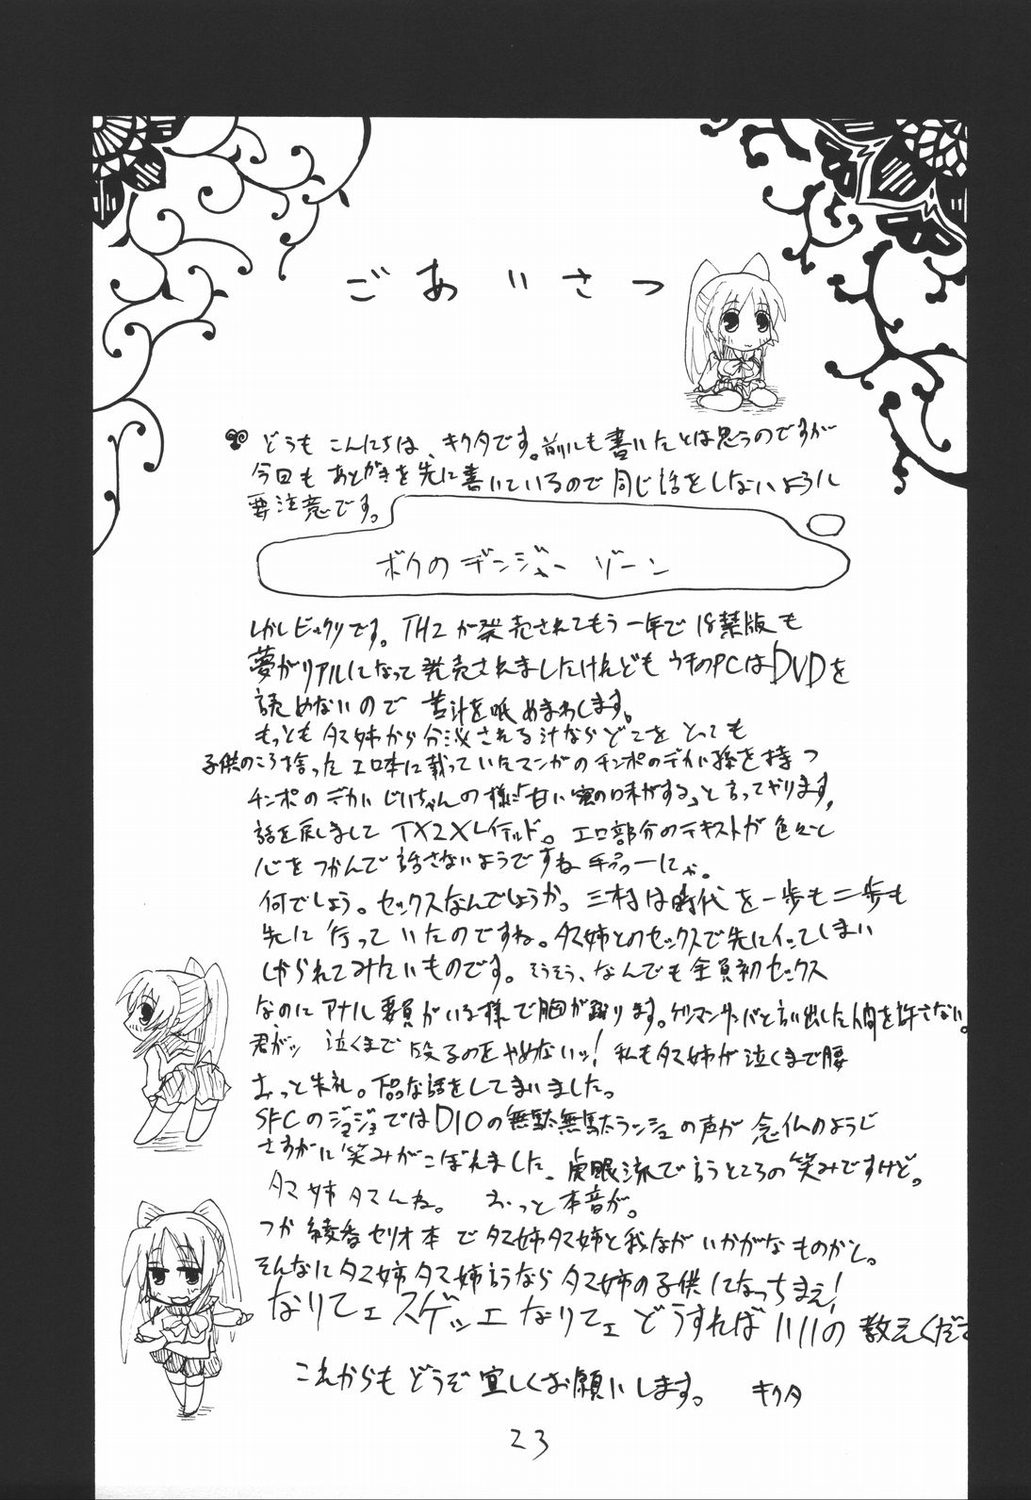 ごあいさつ
どうもこんにちは、キクタです。前にも書いたとは思うのですが
今回もあとがきを先に書いているので同じ話をしないように
要注意です。
ボクのデンジャーゾーン
しかしビックリです。TH2が発売されてもう一年で18禁版も
夢がリアルになって発売されましたけれどもうちのPCはDVDを
読めないので苦汁を舐めまわします。
もっともタマ姉から分泌される汁ならどこをとっても
子供のころ拾ったエロ本に載っていたマンガのチンポのデカい孫を持つ
チンポのデカいじいちゃんの様に「甘い蜜の味がする」と言ってやります。
話を戻しましてTX2X。エロ部分のテキストが色々と
心をつかんで話さないようですね
何でしょう。セックスなんでしょうか。三村は時代を一歩も二歩も
先に行っていたのですね。タマ姉とのセックスで先にイッてしまい
しかられてみたいものです。そうそう、なんでも全員初セックス
なのにアナル要員がいる様で胸が踊ります。と言い出した人間を許さない。
君がッ 泣くまで殴るのをやめないッ!私もタマ姉が泣くまで腰
おっと失礼。下品な話をしてしまいました。
SFCのジョジョではDIOの無駄無駄ランシュの声が念仏のようじ
さすがに笑みがこぼれました。虎眼流で言うところの笑みですけど。
タマ姉タマんね。 おっと本音が。
つか綾香セリオ本でタマ姉タマ姉と我ながらいかがなものかと。
そんなにタマ姉タマ姉言うならタマ姉の子供になっちまえ!
なりてェスゲッェなりてェどうすればいいの教えくださ
これからもどうぞ宜しくお願いします。 キクタ
23